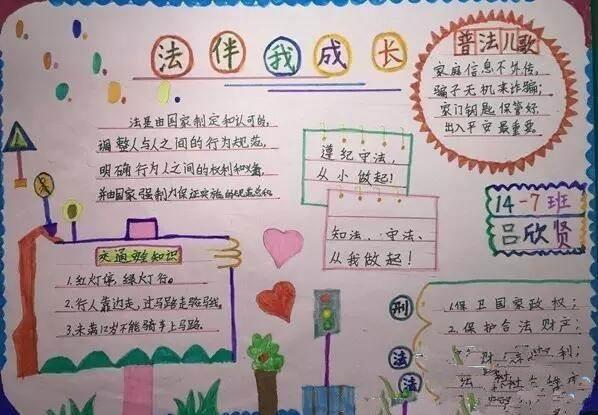 法伴我成长
普法儿歌
家庭信息不外传,
骗子无机来诈骗;
家门钥匙保管好,
出入平安最重要。
法是由国家制定和认可的,
调整人与人之间的行为规范,
明确行为人之间的权利和义务,
并由国家强制力保证实施的规范总和
遵纪守法,
从小做起!
14-7班
吕欣贤
知法、守法、
从我做起!
交通安全知识
1.红灯停,绿灯行。
2.行人靠边走,过马路走斑马线。
3.未满12岁不能骑车上马路。
刑法法
1.保卫国家政权;
2.保护合法财产;
财 利;
法